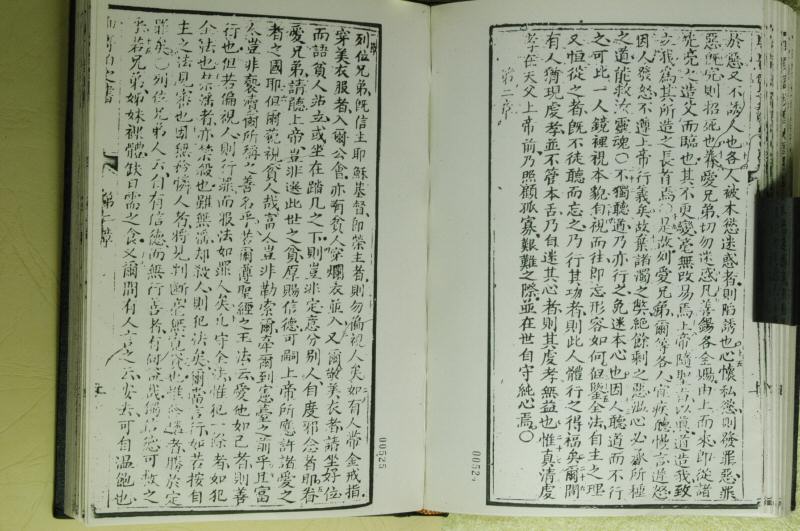 於惡又不誘人也各人被本慾迷惑者則陷誘也心懷私慾則發罪惡罪
惡旣完則招死也夫愛兄弟切勿迷惑凡善錫各全賜由上而來即從諸
光亮之造父而臨也其不更變毫無改易焉上帝隨聖旨以眞道造我致
我爲其所造之長者焉〇是故列愛兄弟爾等各人宜疾聽慎言遲怒
因人發怒不遵上帝行義矣故棄諸濁之弊絕餘剩之惡溫心必
之道能救汝靈魂〇不獨聽道乃亦行之免迷本心也因人聽道而不行
之可比一人鏡裡視本貌自視而往即忘形容如何但鑒全法自主之理
又恒從之者旣不徒聽而忘之乃行其功者則此人體行之得福矣爾間
有人猶現虔孝並不管本舌乃自迷其心者則其虔孝無益也惟眞清虔
孝在天父上帝前乃照顧孤寡艱難之際並在世自守純心焉〇
第二章
列位兄弟旣信主耶穌基督即榮主者則勿偏視人矣如有人帶金戒指
穿美衣服者入爾公會亦有貧人穿爛衣並入又爾敬美衣者請坐好位
而語貧人站立或坐在踏几之下則豈非定意分別人自度邪念者耶吾
愛兄弟請聽上帝豈非選此世之貧厚賜信德可嗣上帝所應許諸愛之
者之國耶但爾藐視貧人哉富人豈非勒索爾牽爾到憲臺之前乎且富
人豈非褻瀆爾所稱之善名乎若爾遵聖經之王法云愛他如己者則善
行也但若偏視人則行罪而服法如罪人矣凡守全法惟犯一條者如犯
全法也禁淫者亦禁殺也雖無淫却殺人則犯法矣爾當言行如若按自
主之法見審也因無矜憐人者將見判斷無矜憐者勝於定
罪矣〇列位兄弟人六自有信德而無行善者有何益哉信德可救之
乎若兄弟姊妹裸體缺日需之食又爾間有人言之云安去可自溫飽也
00525